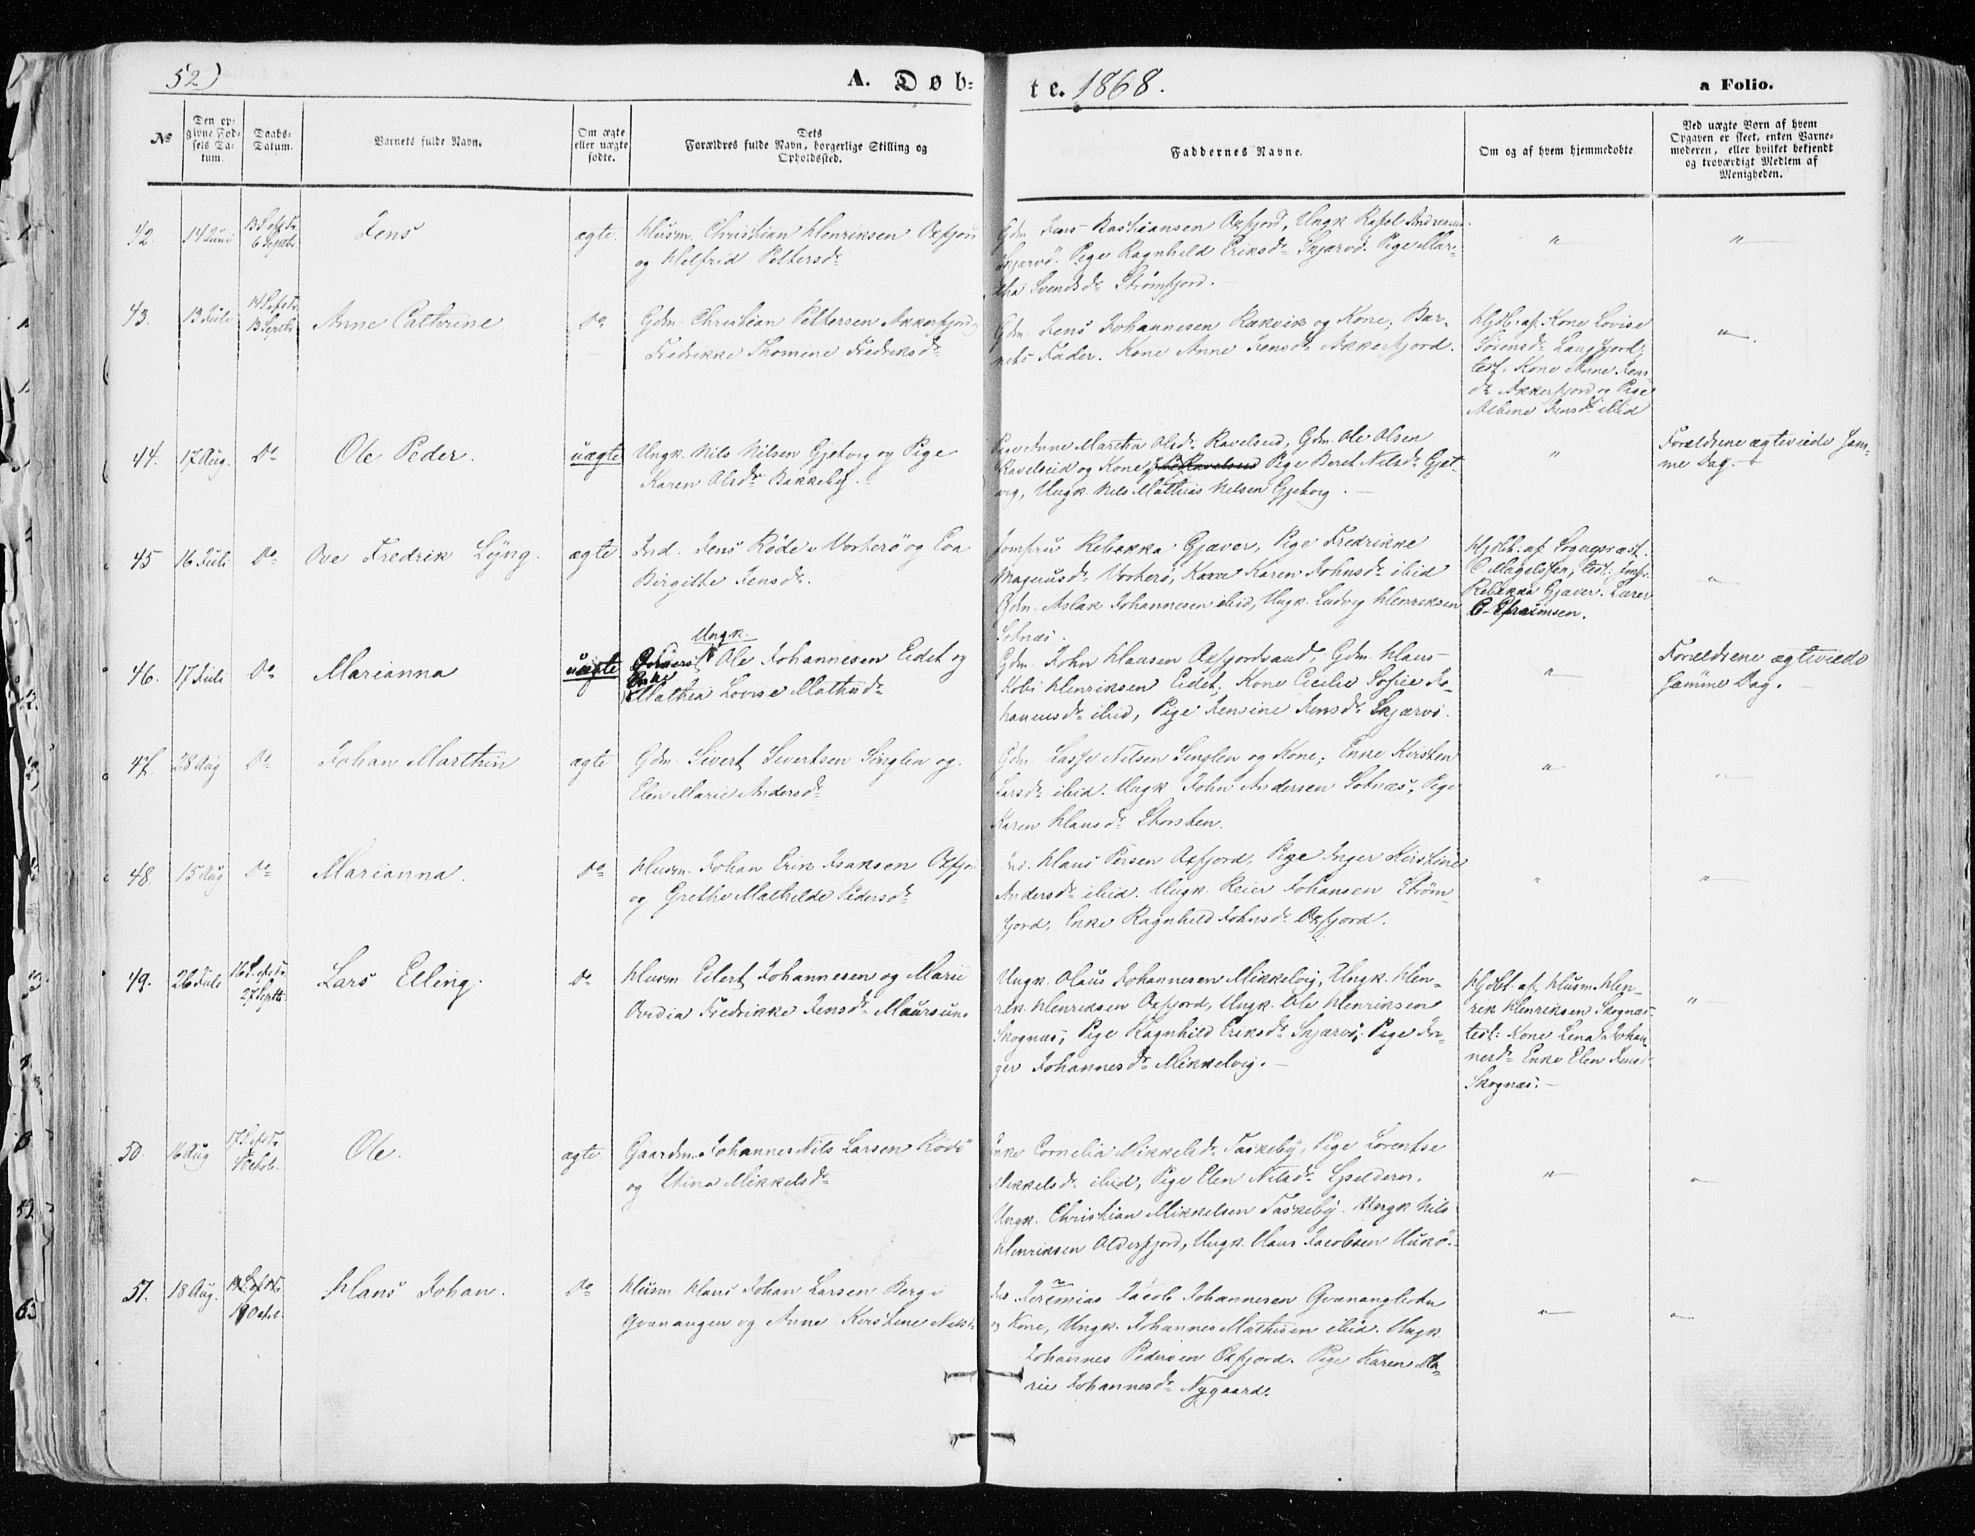 52)
A. Døb-
te. 1868.
a Folio.
№
Den op-
givne Fød-
sels Da-
tum.
Daabs-
Datum.
Barnets fulde Navn.
Om ægte
eller uægte
fødte.
Dets
Forældres fulde Navn, borgerlige Stilling og
Opholdssted.
Faddernes Navne.
Om og af hvem hjemmedøbte.
Ved uægte Børn af hvem
Opgaven er skeet, enten Barne-
moderen, eller hvilket bekjendt
og troværdigt Medlem af
Menigheden.
42
14 Juni
13 S. ef. Tr.
6 Septbr.
Jens
ægte.
Husm. Christian Henriksen Oxfjord
og Helfrid Pettersdr
Gdm. Jens Bastiansen Oxfjord, Ungk. Rafol Andreasen
Skjærvö. Pige Ragnhild Eriksdr Skjærvö. Pige Mar-
tha Svendsdr Strömfjord.
"
"
43.
13 Juli
14 S. ef. Tr.
13 Septbr.
Anne Cathrine
Do
Gdm. Christian Pettersen Akkerfjord og
Fredrikke Thomine Fredriksdr
Gdm. Jens Johannesen Rækvik og Kone; Bar-
nets Fader. Kone Anne Jensdr Akkerfjord.
Hjdb. af Kone Lovise
Sörensdr Langfjord;
test. Kone Anne Jens
dr Akkerfjord og Pige
Albine Jensdr ibid
"
44.
17 Aug.
Do
Ole Peder.
uægte
Ungk. Nils Nilsen Gjetvig og Pige
Karen Olsdr Bakkeby.
Pige Anne Martha Olsdr Ravelseid, Gdm. Ole Olsen
Ravelseid og Kone, Pige Beret Nilsdr Gjet-
vig, Ungk. Nils Mathias Nilsen Gjetvig.
"
Forældrene ægteviede sam-
me Dag.
45
16 Juli
Do
Ove Fredrik Lyng.
ægte
Ind. Jens Röde Vorterö og Eva
Birgithe Jensdr.
Jomfru Rebekka Gjæver, Pige Fredrikke
Magnusdr Vorterö, Kone Karen Johnsdr ibid
Gdm. Aslak Johannesen ibid, Ungk. Ludvig Henriksen
Sotnæs.
Hjdbt. af Sognepræst
C. Magelssen, test: Jomfr.
Rebekka Gjæver. Lærer
C. Efraimsen.
"
46.
17 Juli
Do
Marianna
uægte
Ungk.
Ole Johannesen Eidet og
Enke
Mathea Lovise Mathisdr
Gdm. John Hansen Oxfjordvand, Gdm. Hans
Kobi Henriksen Eidet; Kone Cecilie Sofie Jo-
hannesdr ibid, Pige Jensine Jensdr Skjærvö.
"
Forældrene ægteviede
samme Dag.
47.
28 Aug
Do
Johan Marthin
ægte
Gdm. Sivert Sivertsen Singlen og
Elen Marie Andersdr
Gdm. Lasse Nilsen Singlen og Kone; Enke Kirsten
Larsdr ibid. Ungk. John Andersen Sotnæs, Pige
Karen Hansdr Storsten.
"
"
48.
15 Aug
Do
Marianna.
Do
Husm. Johan Erik Isaksen Oxfjord
og Grethe Mathilde Pedersdr
Ind. Hans Persen Oxfjord, Pige Inger Kirstine
Andersdr ibid. Ungk. Reier Johansen Ström-
fjord, Enke Ragnhild Johnsdr Oxfjord.
"
"
49.
26 Juli
16 S. ef. Tr.
27 Septbr.
Lars Elling.
Do
Husm. Eilert Johannesen og Marie
Ovidia Fredrikke Jensdr Maursund
Ungk. Olaus Johannesen Mikkelvig, Ungk. Hen-
rik Henriksen Oxfjord, Ungk. Ole Henriksen
Skognæs; Pige Ragnhild Eriksdr Skjærvö; Pige In-
ger Johannesdr Mikkelvig.
Hjdbt. af Husm. Hen-
rik Henriksen Skognæs
test: Kone Lena Johan-
nesdr Enke Elen Jensdr
Skognæs.
"
50.
16 Aug
17 S. ef. Tr.
4 Octob.
Ole.
ægte
Gaardm. Johannes Nils Larsen Rödö
og Stina Mikkelsdr
Enke Cornelia Mikkelsdr Taskeby, Pige Lorentse
Mikkelsdr ibid, Pige Elen Nilsdr Spilderen.
Ungk. Christian Mikkelsen Taskeby. Ungk. Nils
Henriksen Alderfjord, Ungk. Hans Jacobsen Hukö.
"
"
51.
18 Aug.
Octob.
Hans Johan.
Do
Husm. Hans Johan Larsen Berg i
Qvænangen og Anne Kirstine Nilsdr
Ind. Jeremias Jacob Johannesen Qvænangbotn
og Kone, Ungk. Johannes Mathisen ibid. Ungk.
Johannes Pedersen Oxfjord. Pige Karen Ma-
rie Johannesdr Nygaard.
"
"